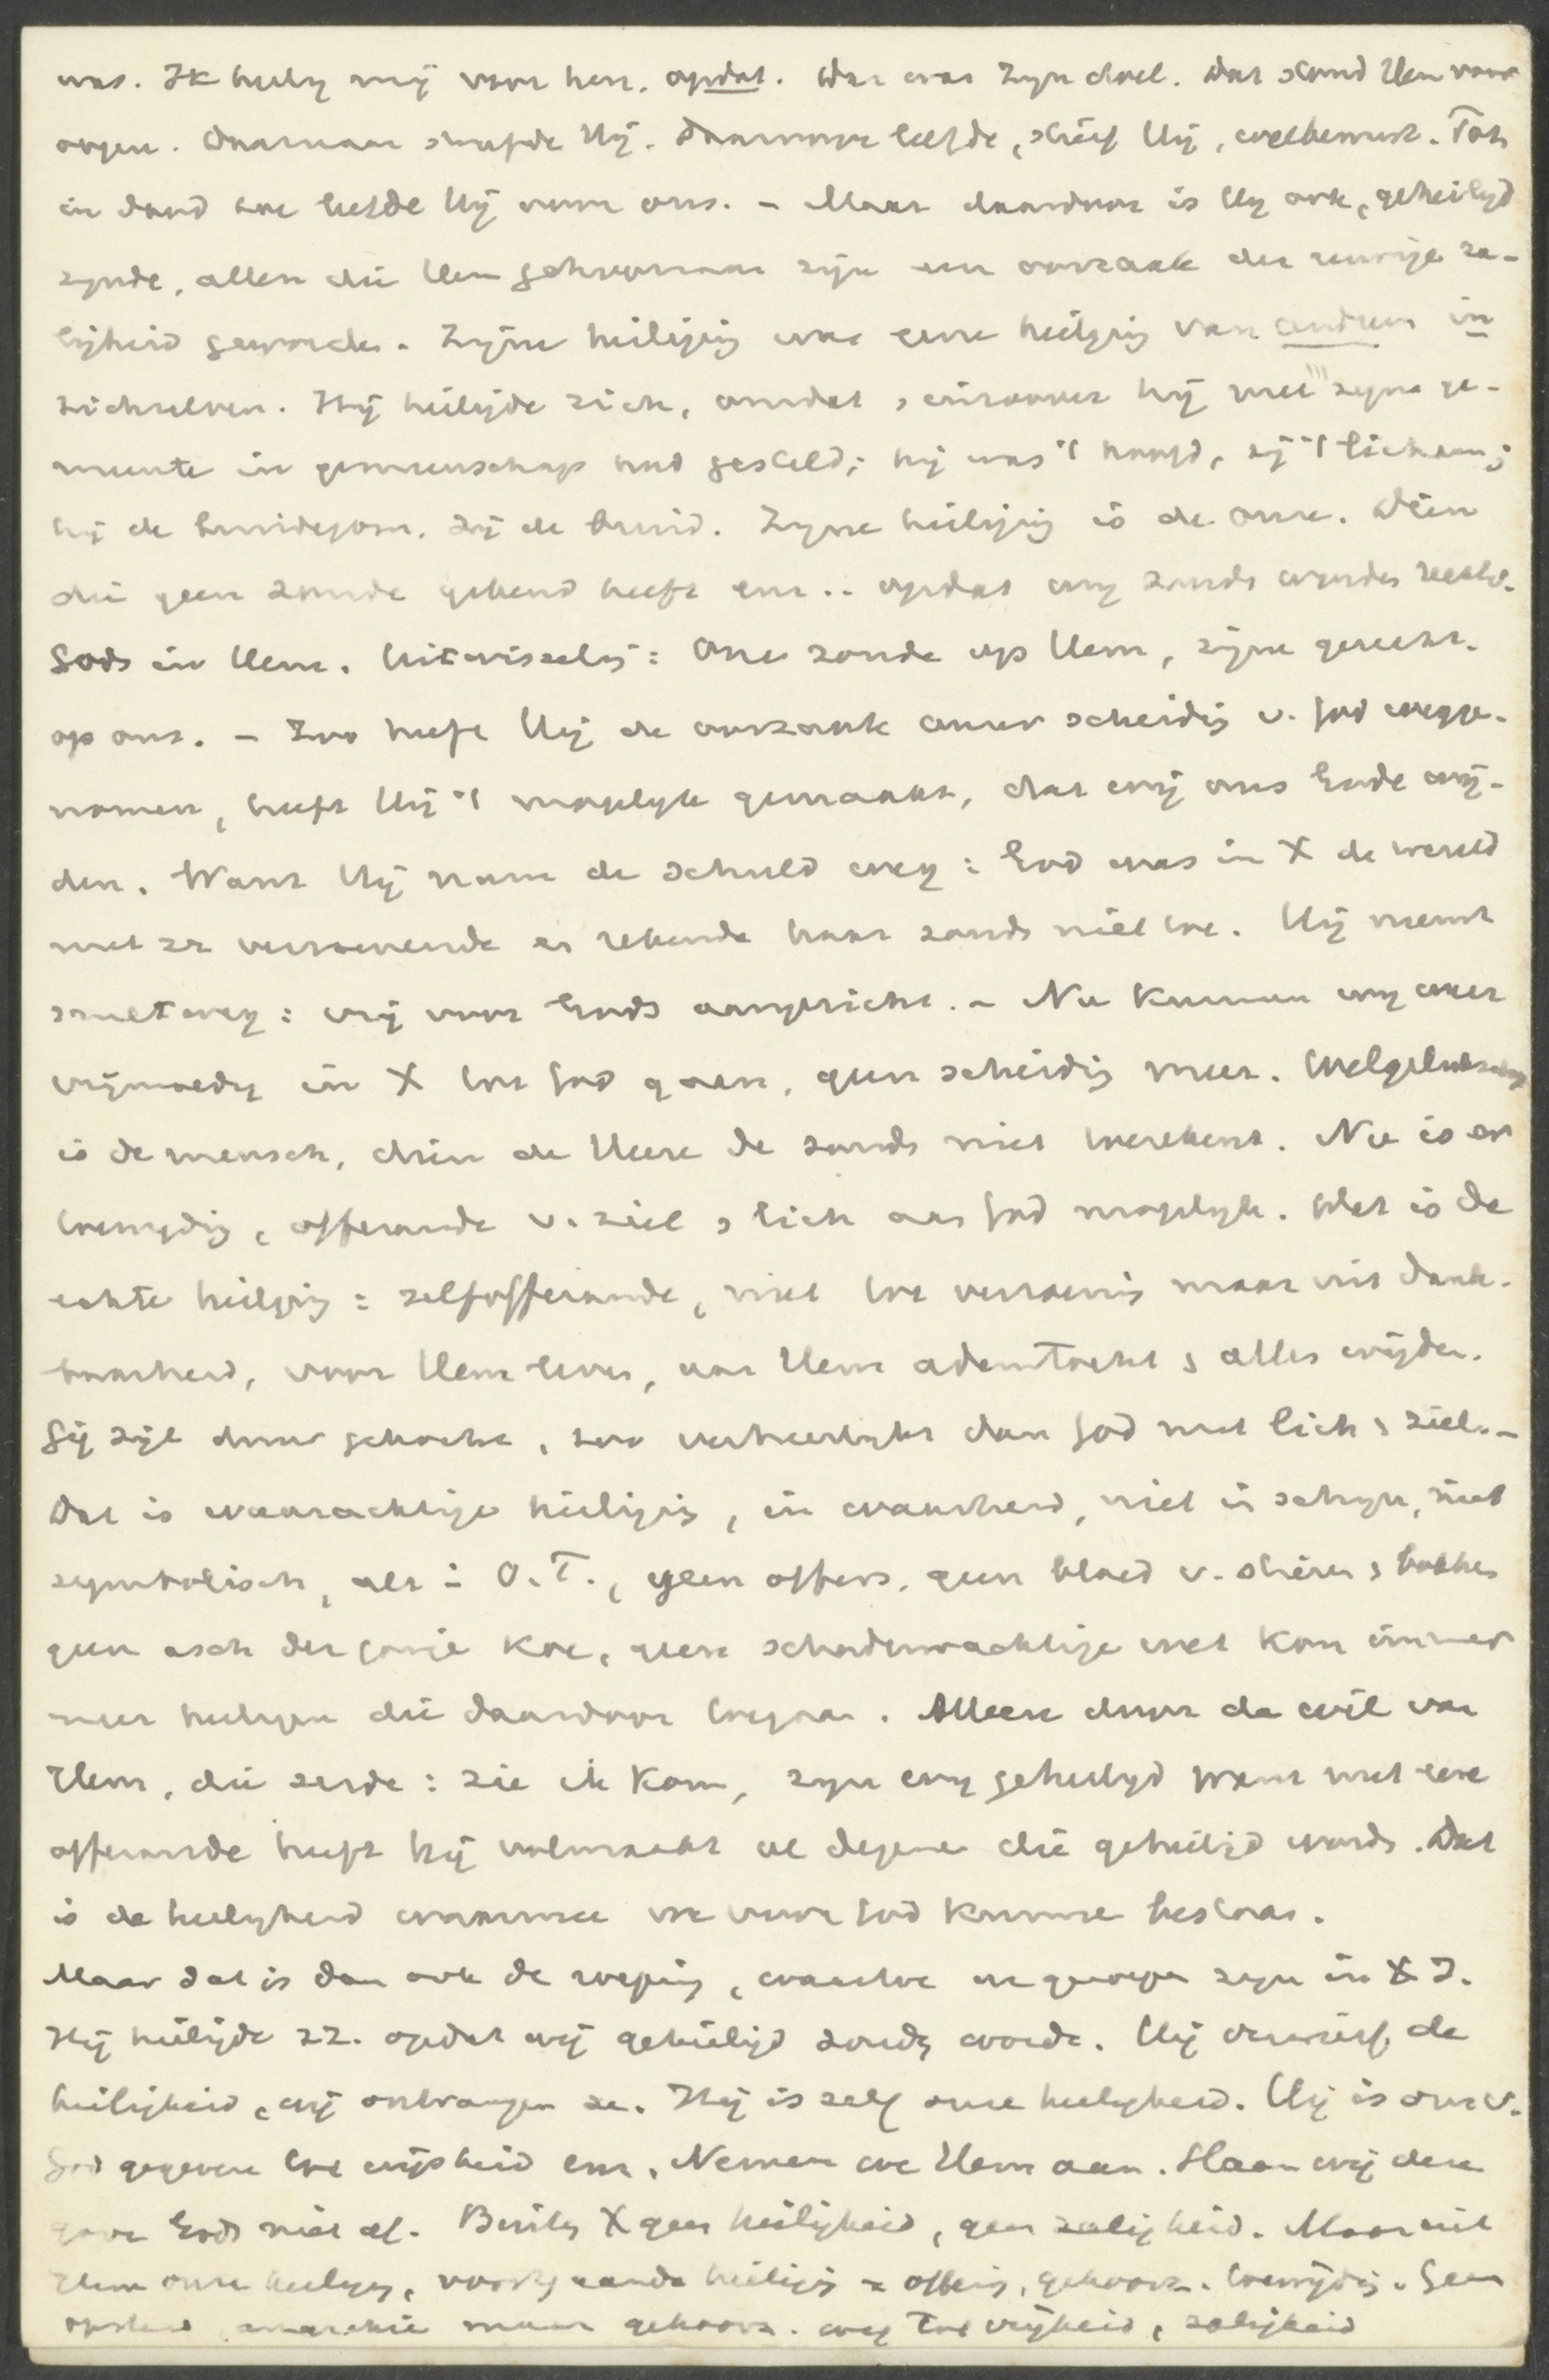 was. Ik heilig mij voor hen, opdat. Dat was Zijn doel. Dat stond Hem voor
oogen. Daarnaar streefde Hij. Daarvoor leefde, stierf Hij, welbewust. Tot
in dood toe liefde Hij voor ons. – Maar daardoor is Hij ook, geheiligd
zijnde, allen die Hem gehoorzaam zijn een oorzaak der eeuwige za-
ligheid geworden. Zijne heiligig was eene heiligig van anderen in
zichzelven. Hij heiligde zich, omdat en voorover hij met zijne ge-
meente in gemeenschap had gesteld; hij was 't hoofd, zij 't lichaam;
hij de bruidegom, zij de bruid. Zijne heiligig is de onze. Dien
die geen zonde gekend heeft enz.. opdat wij zouden worden rechtv.
Gods in Hem. Uitwisselig: Onze zonde op Hem, zijne gerecht.
op ons. – Zoo heeft Hij de oorzaak onzer scheidig v. God wegge-
nomen, heeft Hij 't mogelijk gemaakt, dat wij ons Gode wij-
den. Want Hij nam de schuld weg: God was in X de wereld
met zz verzoenende en rekende haar zonde niet toe. Hij neemt
smet weg: vrij voor Gods aangezicht. – Nu kunnen wij weer
vrijmoedig in X tot God gaan, geen scheidig meer. Welgelukzalig
is de mensch, dien de Heere de zonde niet toerekent. Nu is er
toewijdig, offerande v. ziel en lich aan God mogelijk. Dat is de
echte heiligig: zelfofferande, niet tot verzoenig maar uit dank-
baarheid, voor Hem leven, aan Hem ademtocht en alles wijden.
Gij zijt duur gekocht, zoo verheerlijkt dan God met lich en ziel. –
Dat is waarachtige heiligig, in waarheid, niet in schijn, niet
symbolisch, als in O.T., geen offers, geen bloed v. stieren en bokken
geen asch der jonge koe, geen schaduwachtige wet kon immer
meer heiligen die daardoor toegaan. Alleen door de wil van
Hem, die zeide: zie ik kom, zijn wij geheiligd want met eene
offerande heeft hij volmaakt al degenen die geheiligd worden. Dat
is de heiligheid waarmee we voor God kunnen bestaan.
Maar dat is dan ook de roepig, waartoe we geroepen zijn in X J.
Hij heiligde zz. opdat wij geheiligd zouden worden. Hij verwierf de
heiligheid, wij ontvangen ze. Hij is zelf onze heiligheid. Hij is ons v.
God gegeven tot wijsheid enz. Nemen we Hem aan. Slaan wij deze
gave Gods niet af. Buiten X geen heiligheid, geen zaligheid. Maar uit
Hem onze heiligig, voortgaande heiligig = offerig, gehoorz. toewijdig. Geen
opstand, anarchie maar gehoorz. weg tot vrijheid, zaligheid